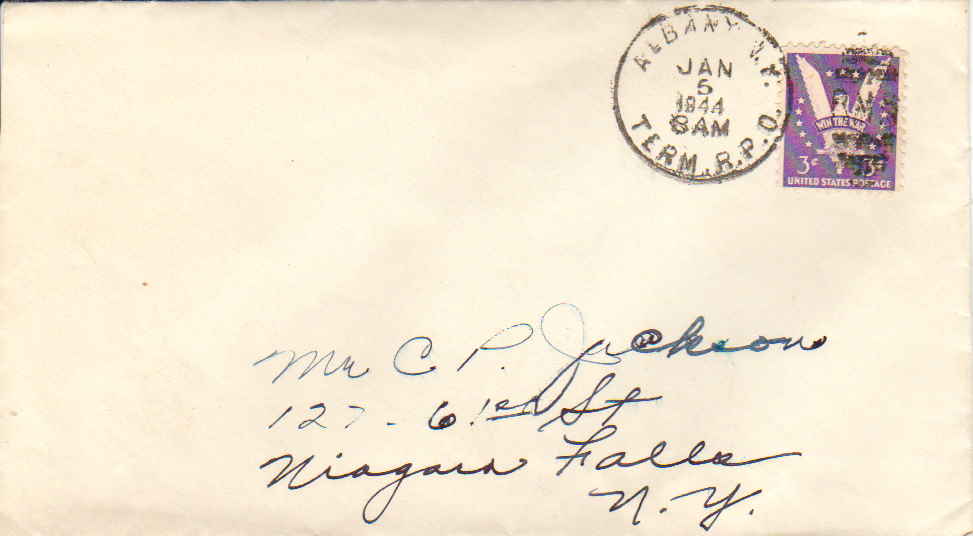 ALBANY N.Y.
JAN
5
1944
8 AM
TERM. R.P.O.
WIN THE WAR
3¢ 3¢
UNITED STATES POSTAGE
Mr C. P. Jackson
127 - 61st St
Niagara Falls
N.Y.